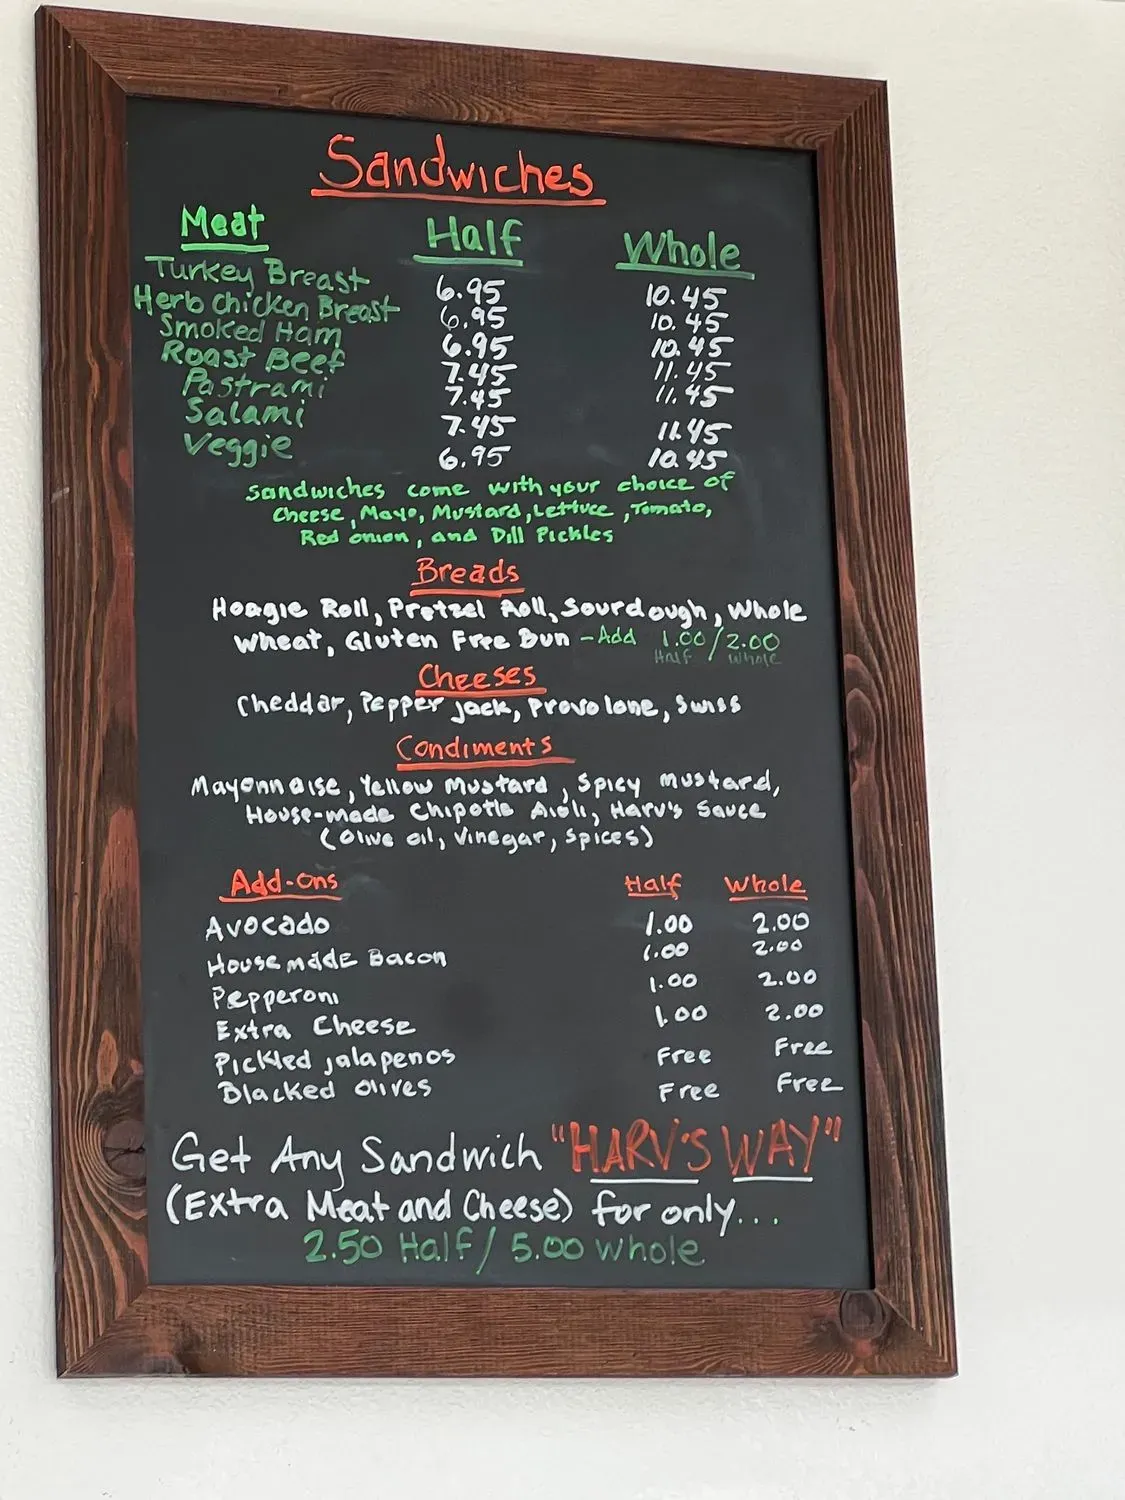 Sandwiches
Meat Half Whole
Turkey Breast 6.95 10.45
Herb Chicken Breast 6.95 10.45
Smoked Ham 6.95 10.45
Roast Beef 7.45 11.45
Pastrami 7.45 11.45
Salami 7.45 11.45
Veggie 6.95 10.45
Sandwiches come with your choice of
Cheese, Mayo, Mustard, Lettuce, Tomato,
Red onion, and Dill Pickles
Breads
Hoagie Roll, Pretzel Roll, Sourdough, Whole
Wheat, Gluten Free Bun - Add 1.00/2.00
Half Whole
Cheeses
Cheddar, Pepper jack, Provolone, Swiss
Condiments
Mayonnaise, Yellow Mustard, Spicy mustard,
House-made Chipotle Aioli, Harv's Sauce
(Olive oil, Vinegar, Spices)
Add-ons Half Whole
Avocado 1.00 2.00
Housemade Bacon 1.00 2.00
Pepperoni 1.00 2.00
Extra Cheese 1.00 2.00
Pickled jalapenos Free Free
Blacked Olives Free Free
Get Any Sandwich "HARV'S WAY"
(Extra Meat and Cheese) for only...
2.50 Half / 5.00 Whole